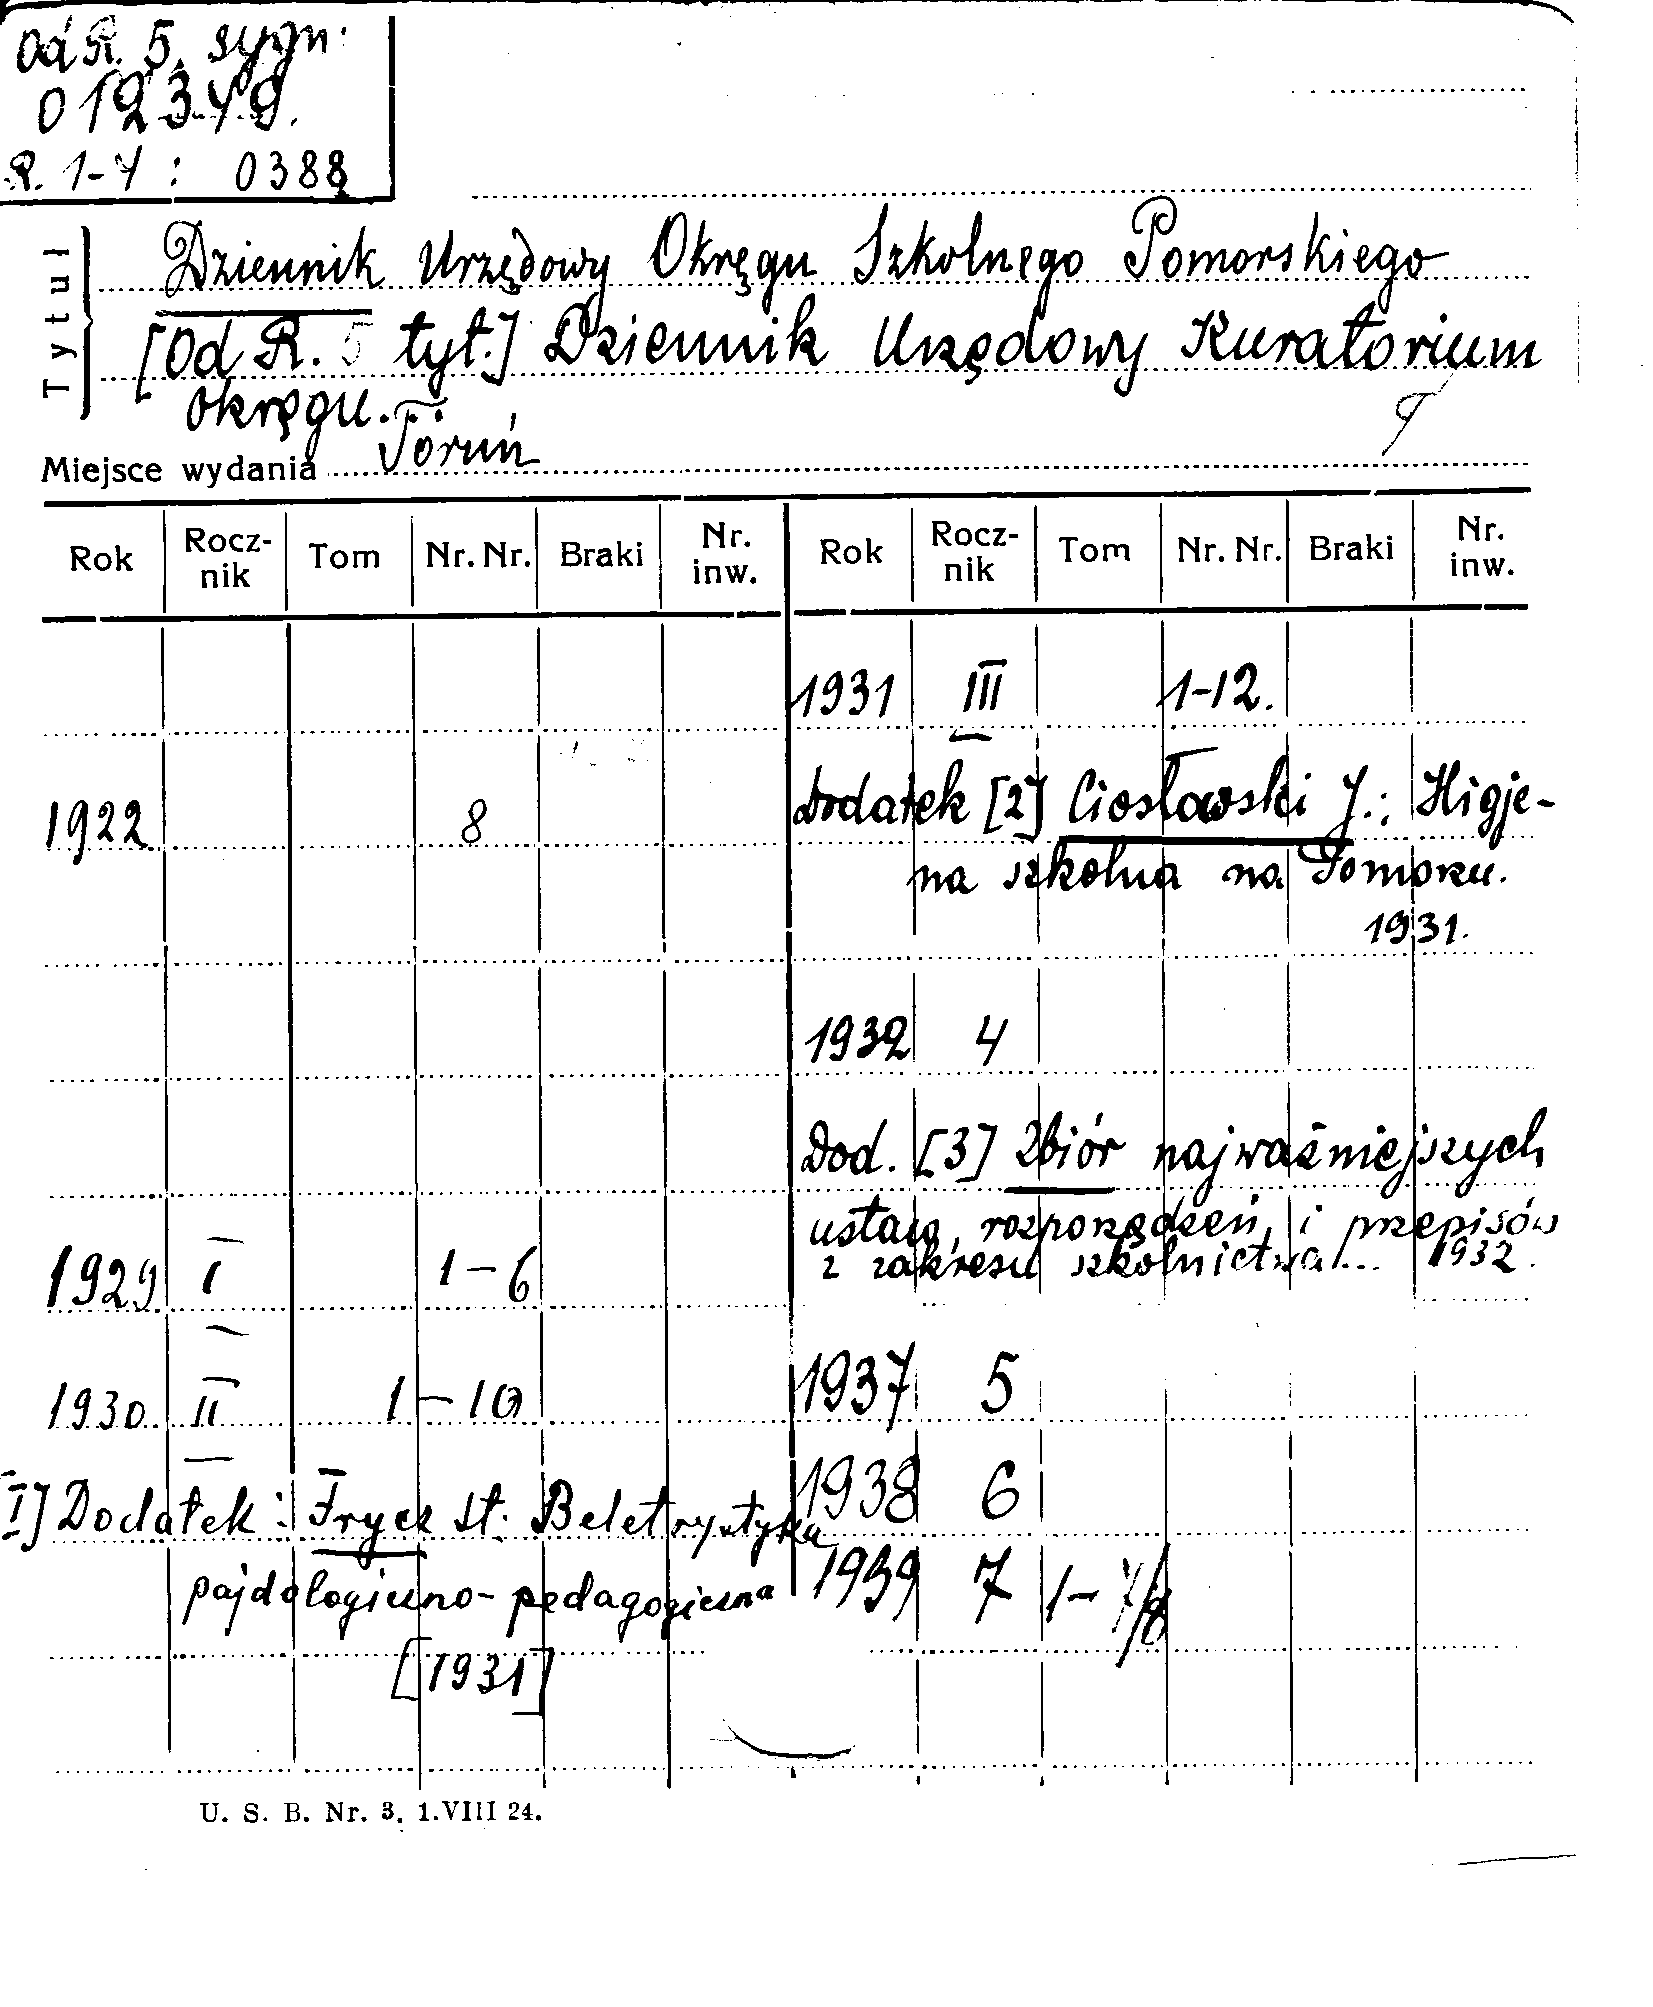 Od R. 5. sygn.
012349.
R. 1-4 : 0388
Tytuł
Dziennik Urzędowy Okręgu Szkolnego Pomorskiego
[Od R. 5 tyt.] Dziennik Urzędowy Kuratorium
Okręgu...
Miejsce wydania Toruń
Rok Rocznik Tom Nr. Nr. Braki Nr. inw. Rok Rocznik Tom Nr. Nr. Braki Nr. inw.
1922 8
1929 I 1-6
1930 II 1-10
I] Dodatek: Frycz St. Beletrystyka
pajdologiczno-pedagogiczna
[1931]
1931 III 1-12.
Dodatek [2] Ciosławski J.: Higje-
na szkolna na Pomorzu.
1931.
1932 4
Dod. [3] Zbiór najważniejszych
ustaw, rozporządzeń i przepisów
z zakresu szkolnictwa... 1932.
1937 5
1938 6
1939 7 1-7/8
U. S. B. Nr. 3. 1.VIII 24.